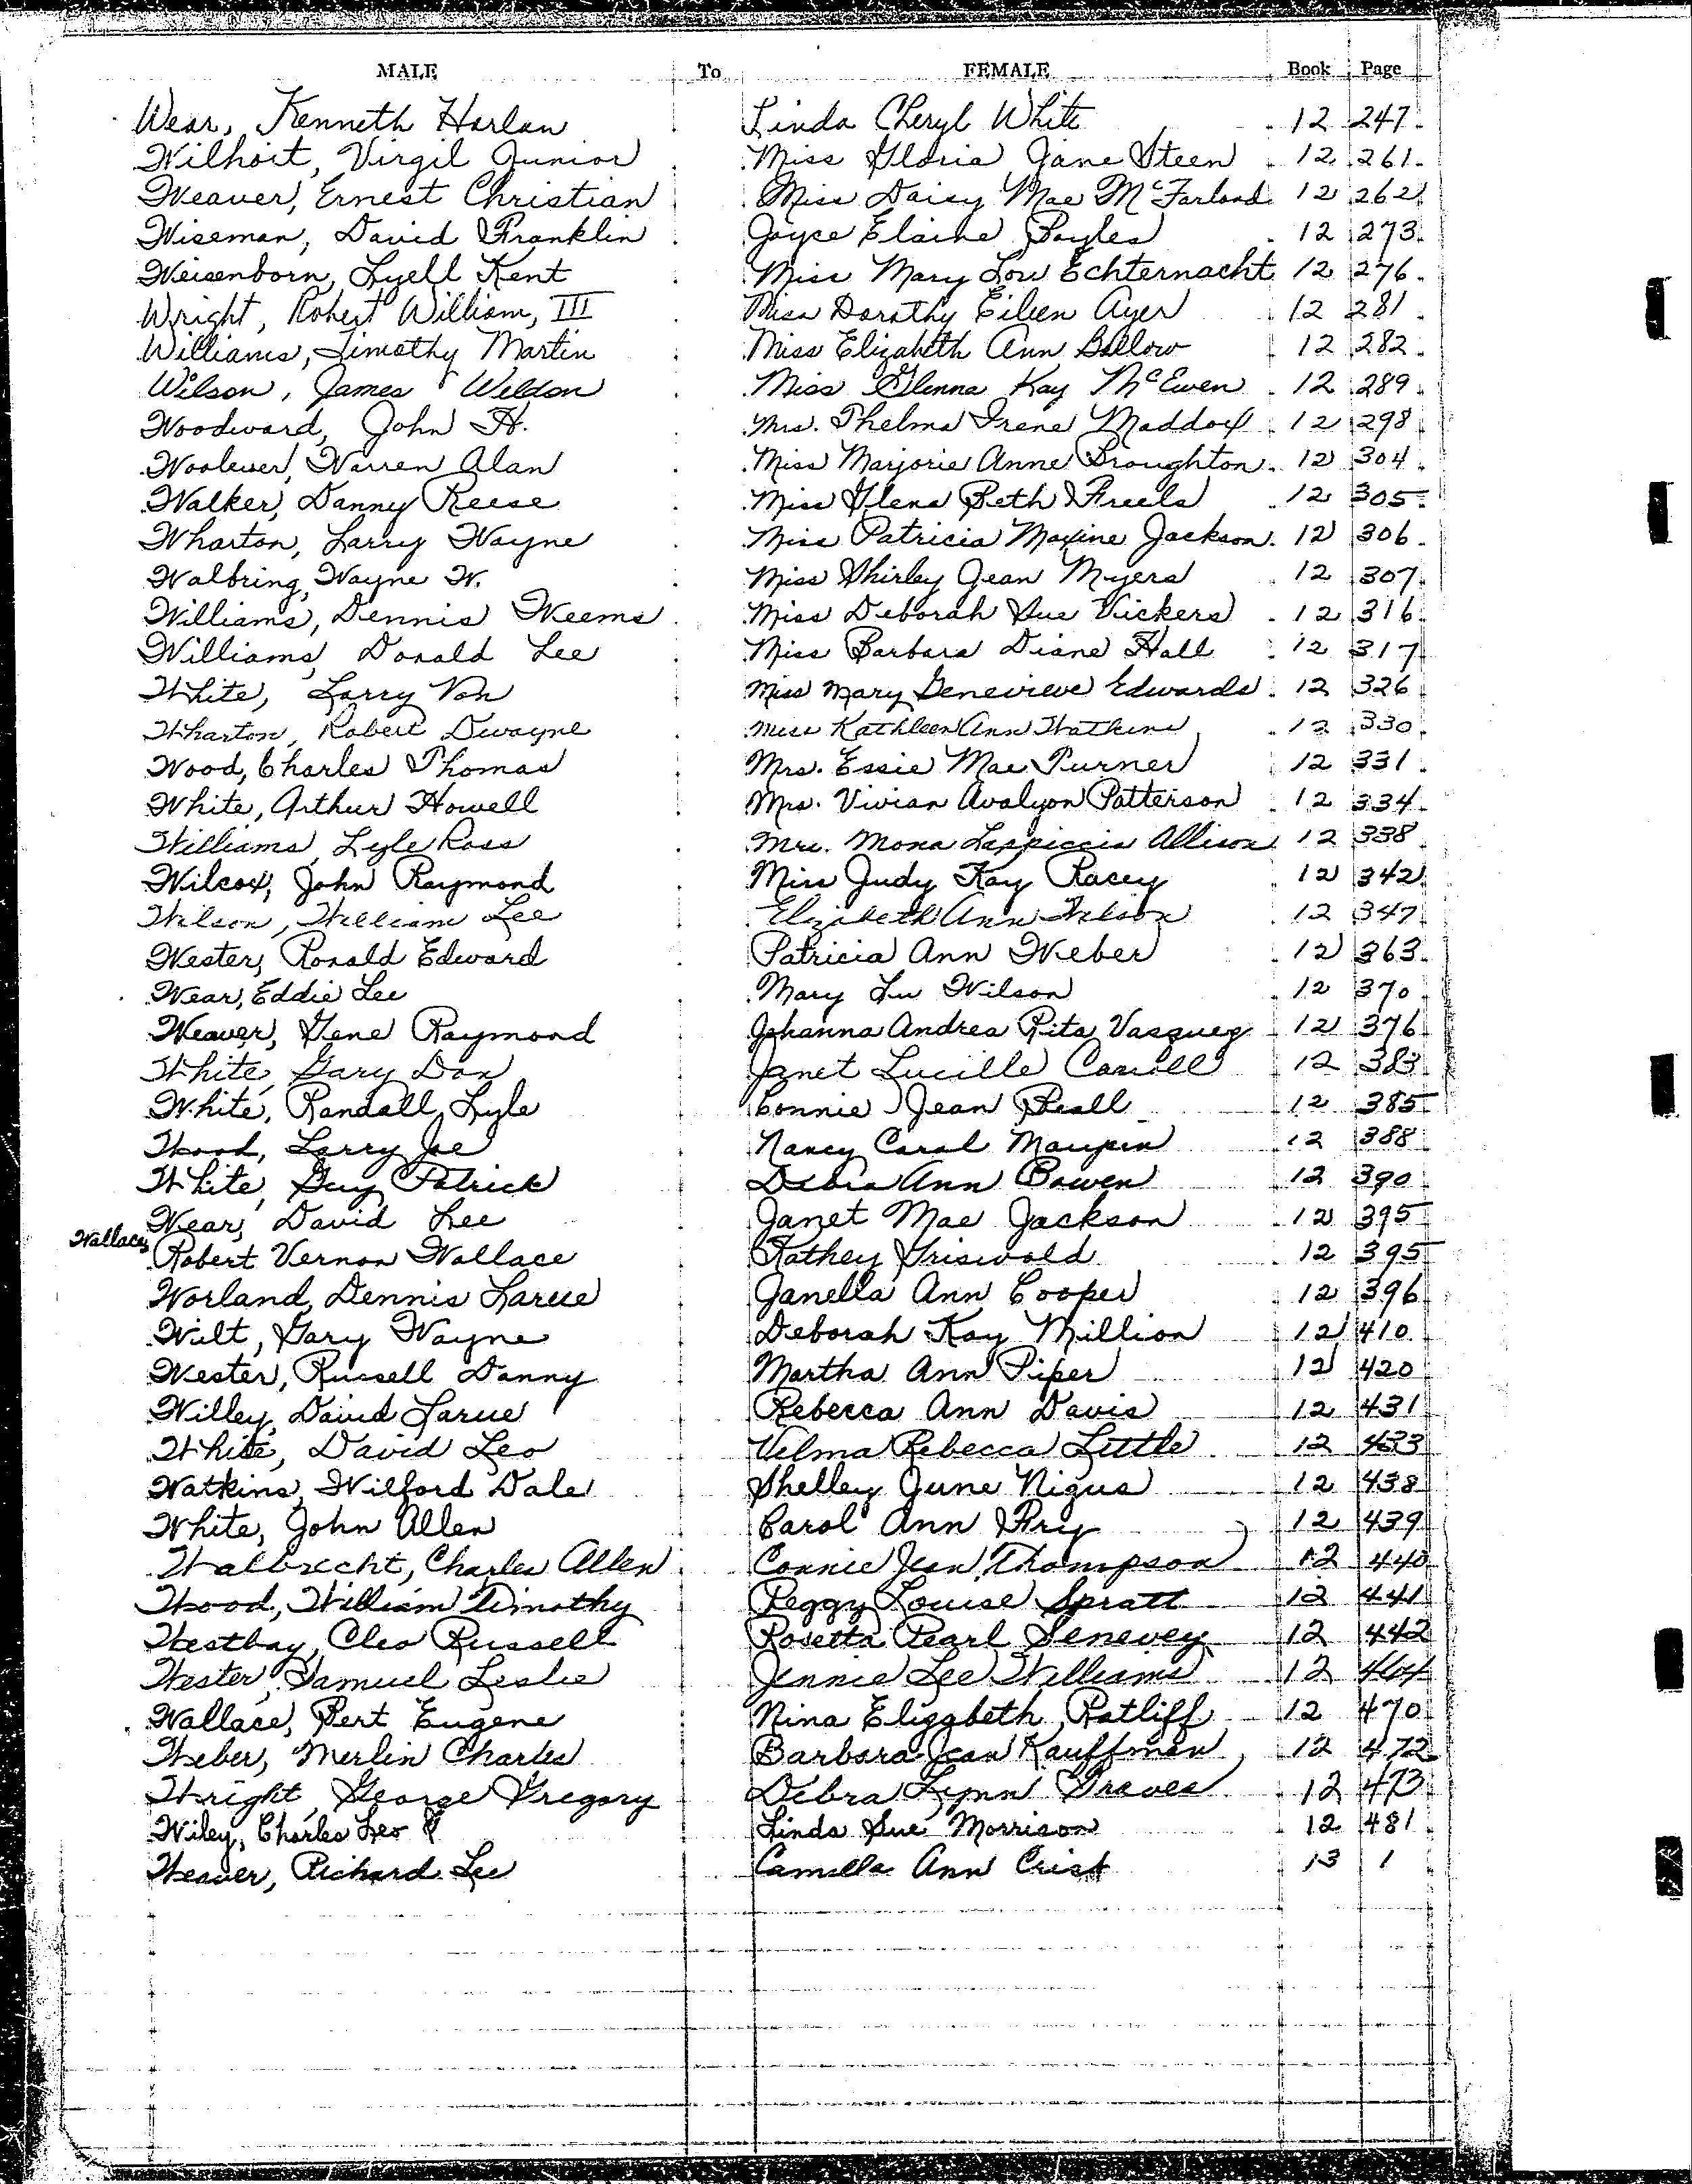 MALE To FEMALE Book Page
Wear, Kenneth Harlan Linda Cheryl White 12 247
Wilhoit, Virgil Junior Miss Gloria Jane Steen 12 261
Weaver, Ernest Christian Miss Daisy Mae McFarland 12 262
Wiseman, David Franklin Joyce Elaine Boyles 12 273
Weisenborn, Lyell Kent Miss Mary Lou Echternacht 12 276
Wright, Robert William, III Miss Dorothy Eileen Ayer 12 281
Williams, Timothy Martin Miss Elizabeth Ann Ballow 12 282
Wilson, James Weldon Miss Glenna Kay McEwen 12 289
Woodward, John H. Mrs. Thelma Irene Maddox 12 298
Woolever, Warren Alan Miss Marjorie Anne Broughton 12 304
Walker, Danny Reese Miss Glena Beth Freels 12 305
Wharton, Larry Wayne Miss Patricia Maxine Jackson 12 306
Walbring, Wayne W. Miss Shirley Jean Myers 12 307
Williams, Dennis Weems Miss Deborah Sue Vickers 12 316
Williams, Donald Lee Miss Barbara Diane Hall 12 317
White, Larry Von Miss Mary Genevieve Edwards 12 326
Wharton, Robert Dwayne Miss Kathleen Ann Watkins 12 330
Wood, Charles Thomas Mrs. Essie Mae Turner 12 331
White, Arthur Howell Mrs. Vivian Avalyon Patterson 12 334
Williams, Lyle Ross Mrs. Mona Lappiccia Allison 12 338
Wilcox, John Raymond Miss Judy Kay Racey 12 342
Wilson, William Lee Elizabeth Ann 12 347
Wester, Ronald Edward Patricia Ann Weber 12 363
Wear, Eddie Lee Mary Lu Wilson 12 370
Weaver, Gene Raymond Johanna Andrea Rita Vasquez 12 376
White, Gary Don Janet Lucille Carroll 12 383
White, Randall Lyle Connie Jean Beall 12 385
Wood, Larry Joe Nancy Carol Maupin 12 388
White, Guy Patrick Debra Ann Bowen 12 390
Wear, David Lee Janet Mae Jackson 12 395
Wallace, Robert Vernon Wallace Kathey Griswold 12 395
Worland, Dennis Larue Janella Ann Cooper 12 396
Wilt, Gary Wayne Deborah Kay Million 12 410
Wester, Russell Danny Martha Ann Piper 12 420
Willey, David Larue Rebecca Ann Davis 12 431
White, David Leo Velma Rebecca Little 12 433
Watkins, Wilford Dale Shelley June Nigus 12 438
White, John Allen Carol Ann Fry 12 439
Walbrecht, Charles Allen Connie Jean Thompson 12 440
Wood, William Timothy Peggy Louise Spratt 12 441
Westbay, Cleo Russell Rosetta Pearl Senevey 12 442
Wester, Samuel Leslie Jennie Lee Williams 12 464
Wallace, Bert Eugene Nina Elizabeth Ratliff 12 470
Weber, Merlin Charles Barbara Jean Kauffman 12 472
Wright, George Gregory Debra Lynn Graves 12 473
Wiley, Charles Leo Linda Sue Morrison 12 481
Weaver, Richard Lee Camilla Ann Crist 13 1